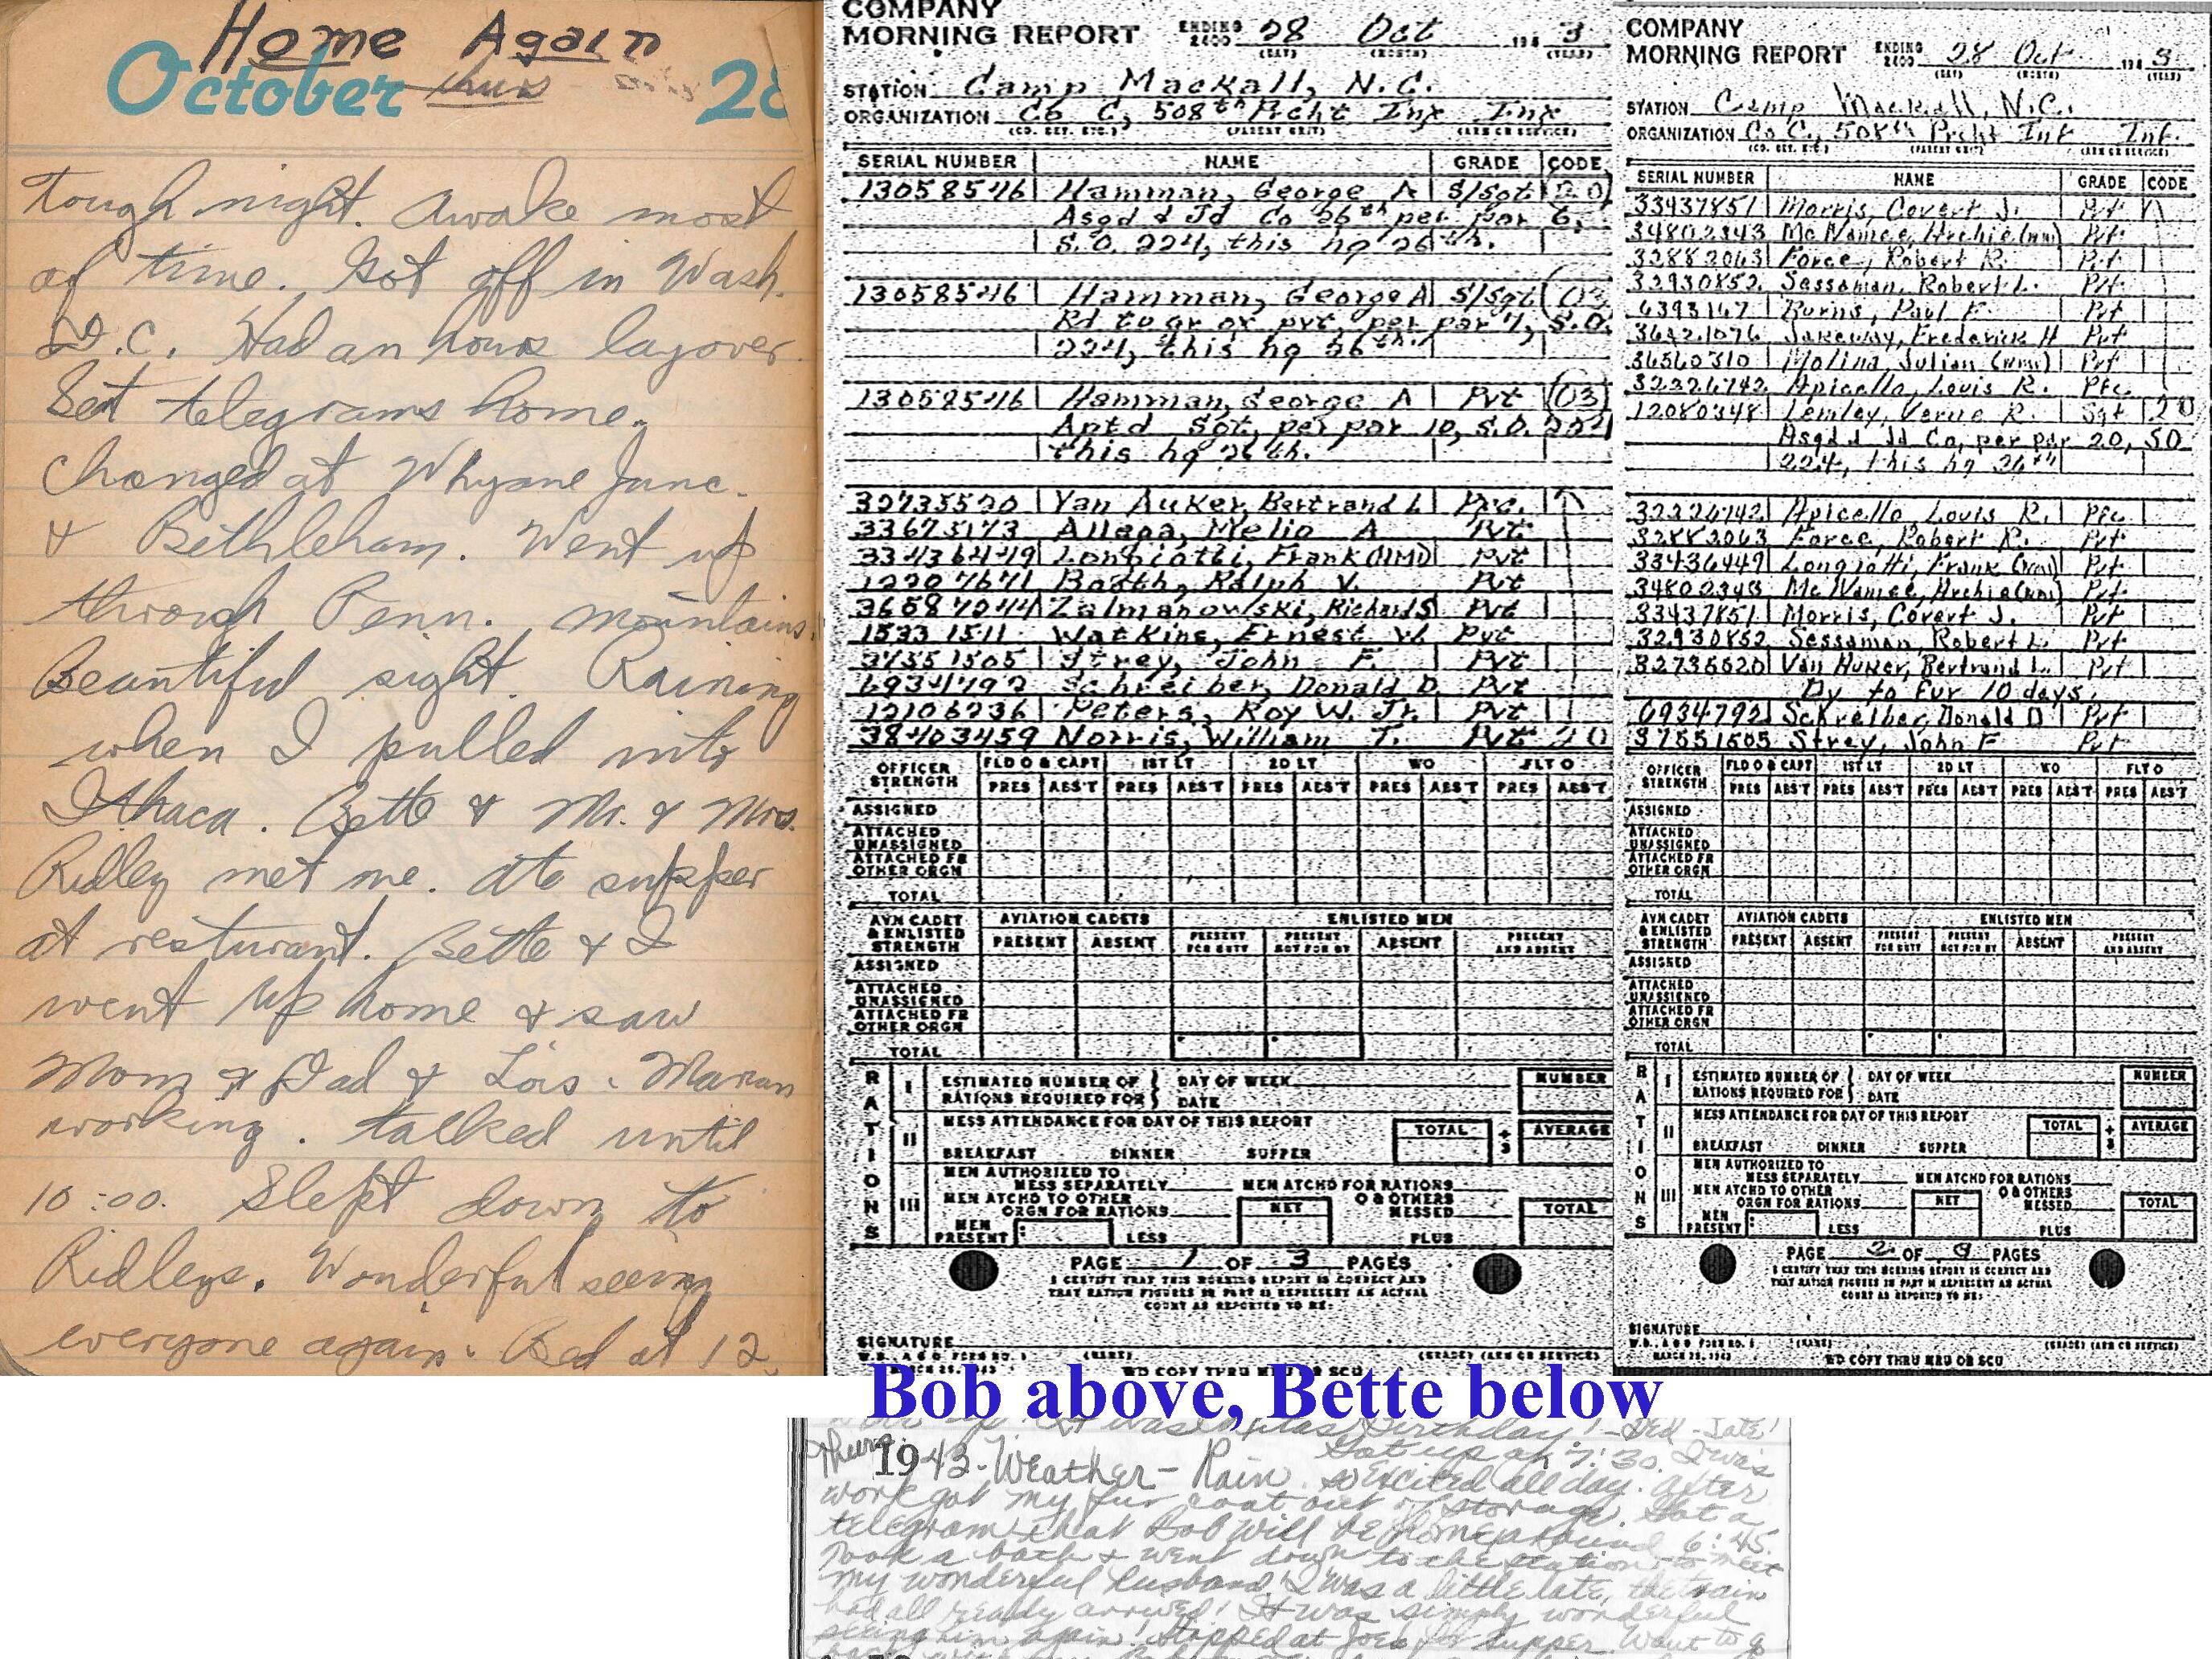 Home Again
October thurs 28
Tough night. Awake most
of time. Got off in Wash.
D.C. Had an hours layover.
Set telegrams home.
Changed at Whyane Junc.
& Bethleham. Went up
through Penn. mountains.
Beautiful sight. Raining
when I pulled into
Ithaca. Bette & Mr. & Mrs.
Ridley met me. Ate supper
at resturant. Bette & I
went up home & saw
Mom & Dad & Lois. Marian
working. talked until
10:00. Slept down to
Ridleys. Wonderful seeing
everyone again. Bed at 12.
COMPANY
MORNING REPORT ENDING 2400 28 Oct 194 3
(DAY) (MONTH) (YEAR)
STATION Camp Mackall, N.C.
ORGANIZATION Co C, 508th Prcht Inf Inf
(CO. DET. ETC.) (PARENT UNIT) (ARM OR SERVICE)
SERIAL NUMBER NAME GRADE CODE
13058546 Hamman, George A S/Sgt 20
Asgd & Jd Co 26th per par 6,
S.O. 224, this hq 26th.
13058546 Hamman, George A S/Sgt 03
Rd to gr of pvt, per par 7, S.O.
224, this hq 26th.
13058546 Hamman, George A Pvt 03
Aptd Sgt, per par 10, S.O. 224
this hq 26th.
32735520 Van Auker, Bertrand L Pfc.
33675173 Allega, Melio A Pvt
33436449 Longiotti, Frank (NMI) Pvt
12207671 Booth, Ralph V. Pvt
36587044 Zalmanowski, Richard S Pvt
15331511 Watkins, Ernest W. Pvt
37551505 Strey, John F. Pvt
6934792 Schreiber, Donald D. Pvt
12106236 Peters, Roy W. Jr. Pvt
38403459 Norris, William T. Pvt 20
OFFICER STRENGTH FLD O & CAPT 1ST LT 2D LT WO FLT O
PRES ABS'T PRES ABS'T PRES ABS'T PRES ABS'T PRES ABS'T
ASSIGNED
ATTACHED UNASSIGNED
ATTACHED FR OTHER ORGN
TOTAL
AVN CADET & ENLISTED STRENGTH AVIATION CADETS ENLISTED MEN
PRESENT ABSENT PRESENT FOR DUTY PRESENT NOT FOR DY ABSENT PRESENT AND ABSENT
ASSIGNED
ATTACHED UNASSIGNED
ATTACHED FR OTHER ORGN
TOTAL
RATIONS
I ESTIMATED NUMBER OF RATIONS REQUIRED FOR DAY OF WEEK DATE NUMBER
II MESS ATTENDANCE FOR DAY OF THIS REPORT TOTAL ÷ 3 AVERAGE
BREAKFAST DINNER SUPPER
III MEN AUTHORIZED TO MESS SEPARATELY MEN ATCHD FOR RATIONS
MEN ATCHD TO OTHER ORGN FOR RATIONS NET O & OTHERS MESSED TOTAL
MEN PRESENT LESS PLUS
PAGE 1 OF 3 PAGES
I CERTIFY THAT THIS MORNING REPORT IS CORRECT AND
THAT RATION FIGURES IN PART II REPRESENT AN ACTUAL
COUNT AS REPORTED TO ME:
SIGNATURE
W.D. A G O FORM NO. 1 (NAME) (GRADE) (ARM OR SERVICE)
MARCH 25, 1943 WD COPY THRU MRU OR SCU
COMPANY
MORNING REPORT ENDING 2400 28 Oct 194 3
(DAY) (MONTH) (YEAR)
STATION Camp Mackall, N.C.
ORGANIZATION Co C, 508th Prcht Inf Inf.
(CO. DET. ETC.) (PARENT UNIT) (ARM OR SERVICE)
SERIAL NUMBER NAME GRADE CODE
33437851 Morris, Covert J. Pvt
34802343 McNamee, Archie (NMI) Pvt
32882063 Force, Robert R. Pvt
32930852 Sessaman, Robert L. Pvt
6393167 Burns, Paul F. Pvt
36421076 Jakeway, Frederick H Pvt
36560310 Molina, Julian (NMI) Pvt
32226742 Apicella, Louis R. Pfc
12080348 Lemley, Verne R. Sgt 20
Asgd & Jd Co, per par 20, SO
224, this hq 26th
32226742 Apicella Louis R. Pfc
32882063 Force, Robert R. Pvt
33436449 Longiotti, Frank (NMI) Pvt
34802343 McNamee, Archie (NMI) Pvt
33437851 Morris, Covert J. Pvt
32930852 Sessaman, Robert L. Pvt
32735520 Van Auker, Bertrand L.
Dy to Fur 10 days.
6934792 Schreiber, Donald D Pvt
37551505 Strey, John F Pvt
OFFICER STRENGTH FLD O & CAPT 1ST LT 2D LT WO FLT O
PRES ABS'T PRES ABS'T PRES ABS'T PRES ABS'T PRES ABS'T
ASSIGNED
ATTACHED UNASSIGNED
ATTACHED FR OTHER ORGN
TOTAL
AVN CADET & ENLISTED STRENGTH AVIATION CADETS ENLISTED MEN
PRESENT ABSENT PRESENT FOR DUTY PRESENT NOT FOR DY ABSENT PRESENT AND ABSENT
ASSIGNED
ATTACHED UNASSIGNED
ATTACHED FR OTHER ORGN
TOTAL
RATIONS
I ESTIMATED NUMBER OF RATIONS REQUIRED FOR DAY OF WEEK DATE NUMBER
II MESS ATTENDANCE FOR DAY OF THIS REPORT TOTAL ÷ 3 AVERAGE
BREAKFAST DINNER SUPPER
III MEN AUTHORIZED TO MESS SEPARATELY MEN ATCHD FOR RATIONS
MEN ATCHD TO OTHER ORGN FOR RATIONS NET O & OTHERS MESSED TOTAL
MEN PRESENT LESS PLUS
PAGE 2 OF 3 PAGES
I CERTIFY THAT THIS MORNING REPORT IS CORRECT AND
THAT RATION FIGURES IN PART II REPRESENT AN ACTUAL
COUNT AS REPORTED TO ME:
SIGNATURE
W.D. A G O FORM NO. 1 (NAME) (GRADE) (ARM OR SERVICE)
MARCH 25, 1943 WD COPY THRU MRU OR SCU
Bob above, Bette below
It was Birthday! - Bed - Late!
Thurs. Got up at 7:30. I was
1943 - Weather - Rain. so Excited all day. After
work got my fur coat out of storage. Got a
telegram that Bob will be home around 6:45.
Took a bath & went down to the station to meet
my wonderful husband! I was a little late, the train
had all ready arrived! It was simply wonderful
seeing him again! Stopped at Joes for supper. Went to